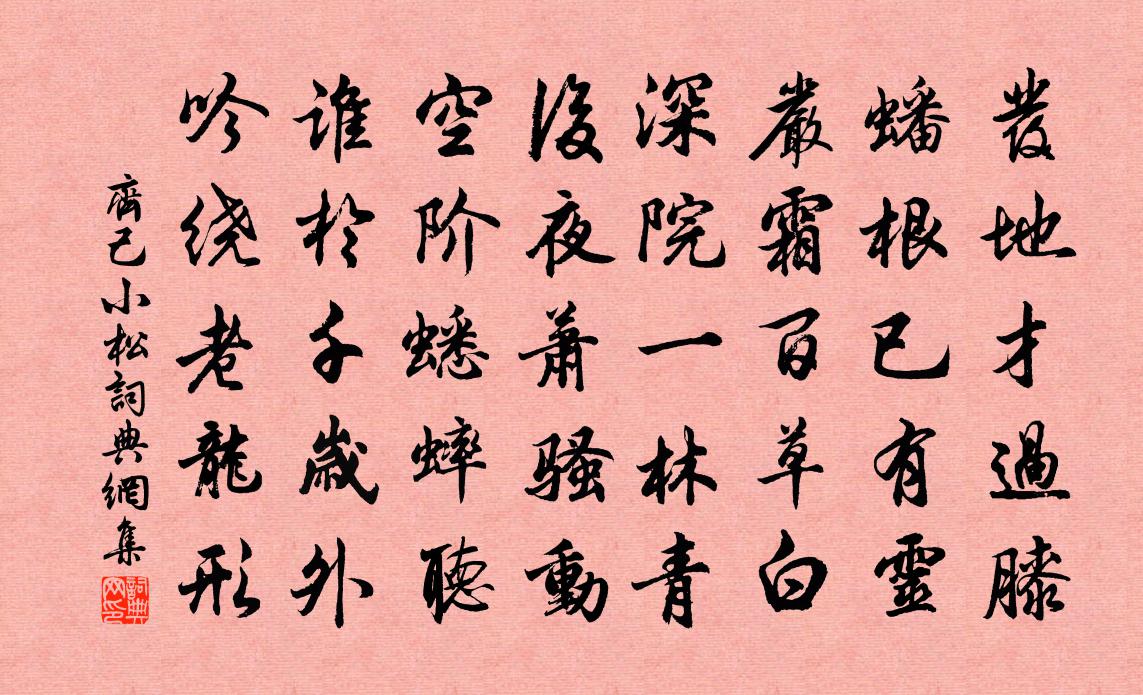 發地才過膝
蟠根已有靈
嚴霜百草白
深院一林青
後夜蕭骚動
空阶蟋蟀聽
谁於千歲外
吟绕老龍形
齊己小松詞典網集
詞典网印